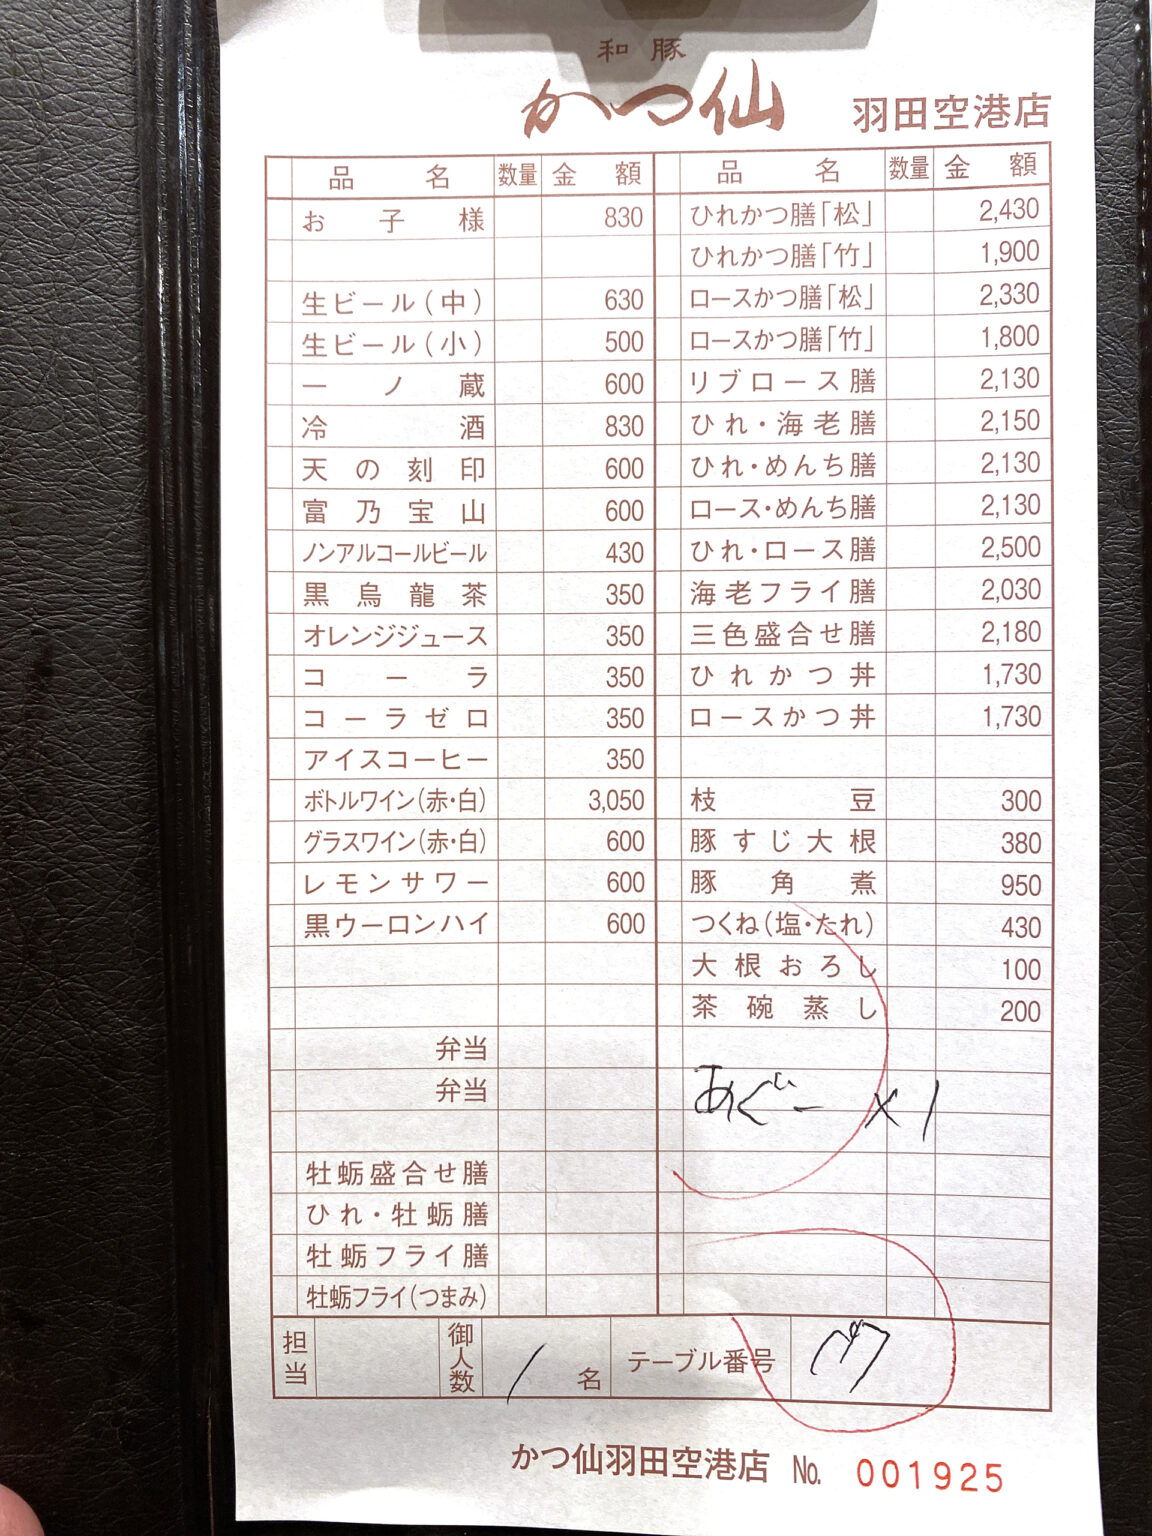 和豚
かつ仙 羽田空港店
品名 数量 金額 品名 数量 金額
お子様 830 ひれかつ膳「松」 2,430
ひれかつ膳「竹」 1,900
生ビール(中) 630 ロースかつ膳「松」 2,330
生ビール(小) 500 ロースかつ膳「竹」 1,800
一ノ蔵 600 リブロース膳 2,130
冷酒 830 ひれ・海老膳 2,150
天の刻印 600 ひれ・めんち膳 2,130
富乃宝山 600 ロース・めんち膳 2,130
ノンアルコールビール 430 ひれ・ロース膳 2,500
黒烏龍茶 350 海老フライ膳 2,030
オレンジジュース 350 三色盛合せ膳 2,180
コーラ 350 ひれかつ丼 1,730
コーラゼロ 350 ロースかつ丼 1,730
アイスコーヒー 350
ボトルワイン(赤・白) 3,050 枝豆 300
グラスワイン(赤・白) 600 豚すじ大根 380
レモンサワー 600 豚角煮 950
黒ウーロンハイ 600 つくね(塩・たれ) 430
大根おろし 100
茶碗蒸し 200
弁当
弁当 あぐー ×1
牡蛎盛合せ膳
ひれ・牡蛎膳
牡蛎フライ膳
牡蛎フライ(つまみ)
担当 御人数 1名 テーブル番号
かつ仙羽田空港店 No. 001925